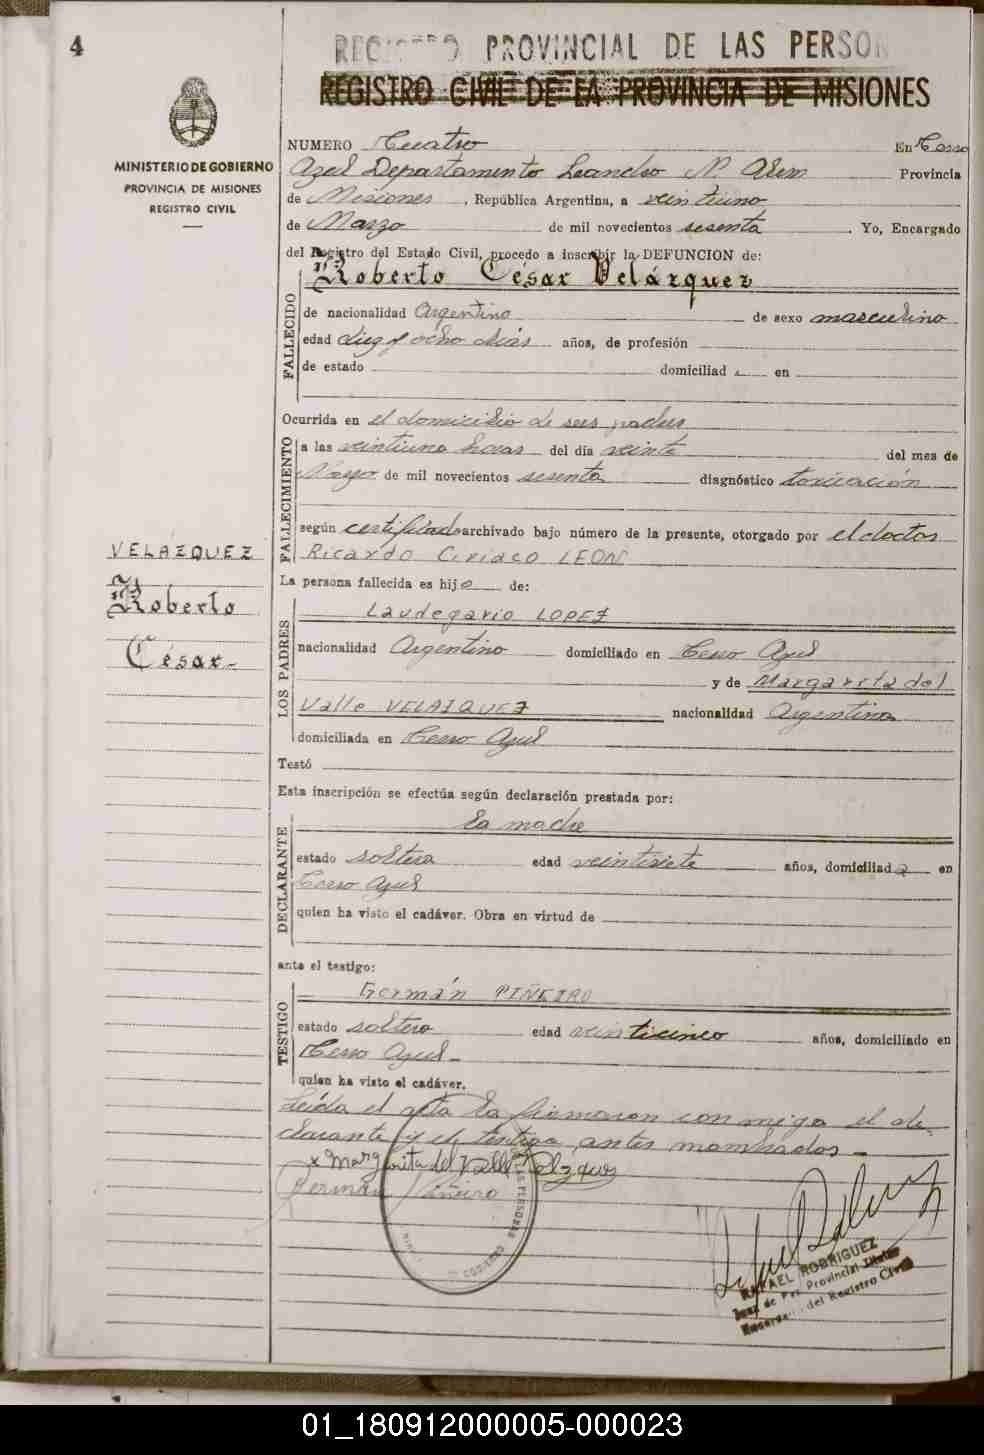 4
REGISTRO PROVINCIAL DE LAS PERSON
REGISTRO CIVIL DE LA PROVINCIA DE MISIONES
MINISTERIO DE GOBIERNO
PROVINCIA DE MISIONES
REGISTRO CIVIL
NUMERO Cuatro En Cerro
Azul Departamento Leandro N. Alem Provincia
de Misiones, República Argentina, a veintiuno
de Marzo de mil novecientos sesenta. Yo, Encargado
del Registro del Estado Civil, procedo a inscribir la DEFUNCION de:
Roberto César Velázquez
FALLECIDO
de nacionalidad Argentino de sexo masculino
edad diez y ocho dias años, de profesión
de estado domiciliad en
Ocurrida en el domicilio de sus padres
FALLECIMIENTO
a las veintiuna horas del día veinte del mes de
Marzo de mil novecientos sesenta diagnóstico toxicación
según certificado archivado bajo número de la presente, otorgado por el doctor
Ricardo Ciriaco LEON
VELAZQUEZ
Roberto
César-
La persona fallecida es hijo de:
LOS PADRES
Laudegario LOPEZ
nacionalidad Argentino domiciliado en Cerro Azul
y de Margarita del
Valle VELAZQUEZ nacionalidad Argentina
domiciliada en Cerro Azul
Testó
Esta inscripción se efectúa según declaración prestada por:
DECLARANTE
la madre
estado soltera edad veintisiete años, domiciliada en
Cerro Azul
quien ha visto el cadáver. Obra en virtud de
ante el testigo:
TESTIGO
Germán PIÑEIRO
estado soltero edad veinticinco años, domiciliado en
Cerro Azul-
quien ha visto el cadáver.
Leída el acta la firmaron conmigo el de-
clarante y el testigo antes nombrados-
x Margarita del Valle Velázquez
Germán Piñeiro
RAFAEL RODRIGUEZ
Juez de Paz Provincial Titular
del Registro Civil
01_180912000005-000023